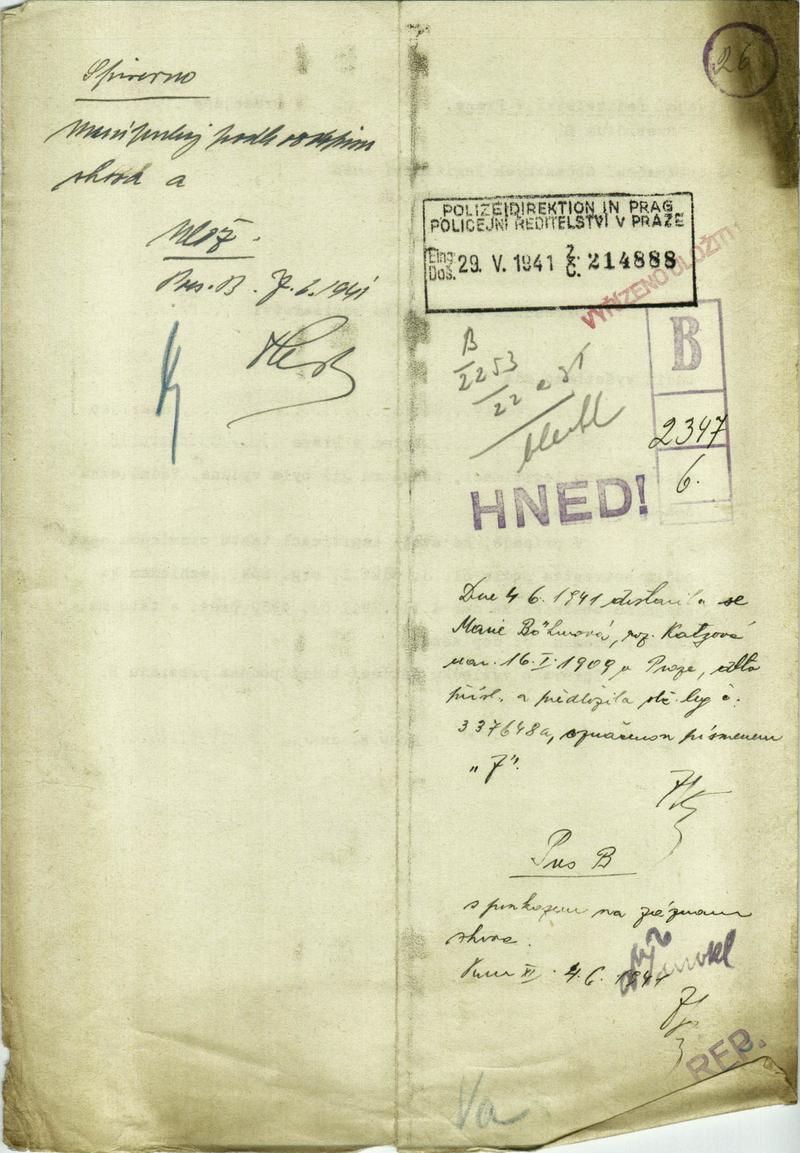 26
Spisovno
podle
shora a
Ulož.
Pres. B. 7.6.1941
POLIZEIDIREKTION IN PRAG
POLICEJNÍ ŘEDITELSTVÍ V PRAZE
Eing. Doš. 29. V. 1941 Z. Č. 214888
VYŘÍZENO ULOŽIT!
B
2253
22
B
2347
6.
HNED!
Dne 4.6.1941 dostavila se
Marie Böhmová, roz. Katzová
nar. 16.I.1909 v Praze,
přísl. a předložila obč. leg. č.
337648a, označenou písmenem
"J".
Pres B
s poukazem na záznam
shora.
4.6.1941
REP.
Va